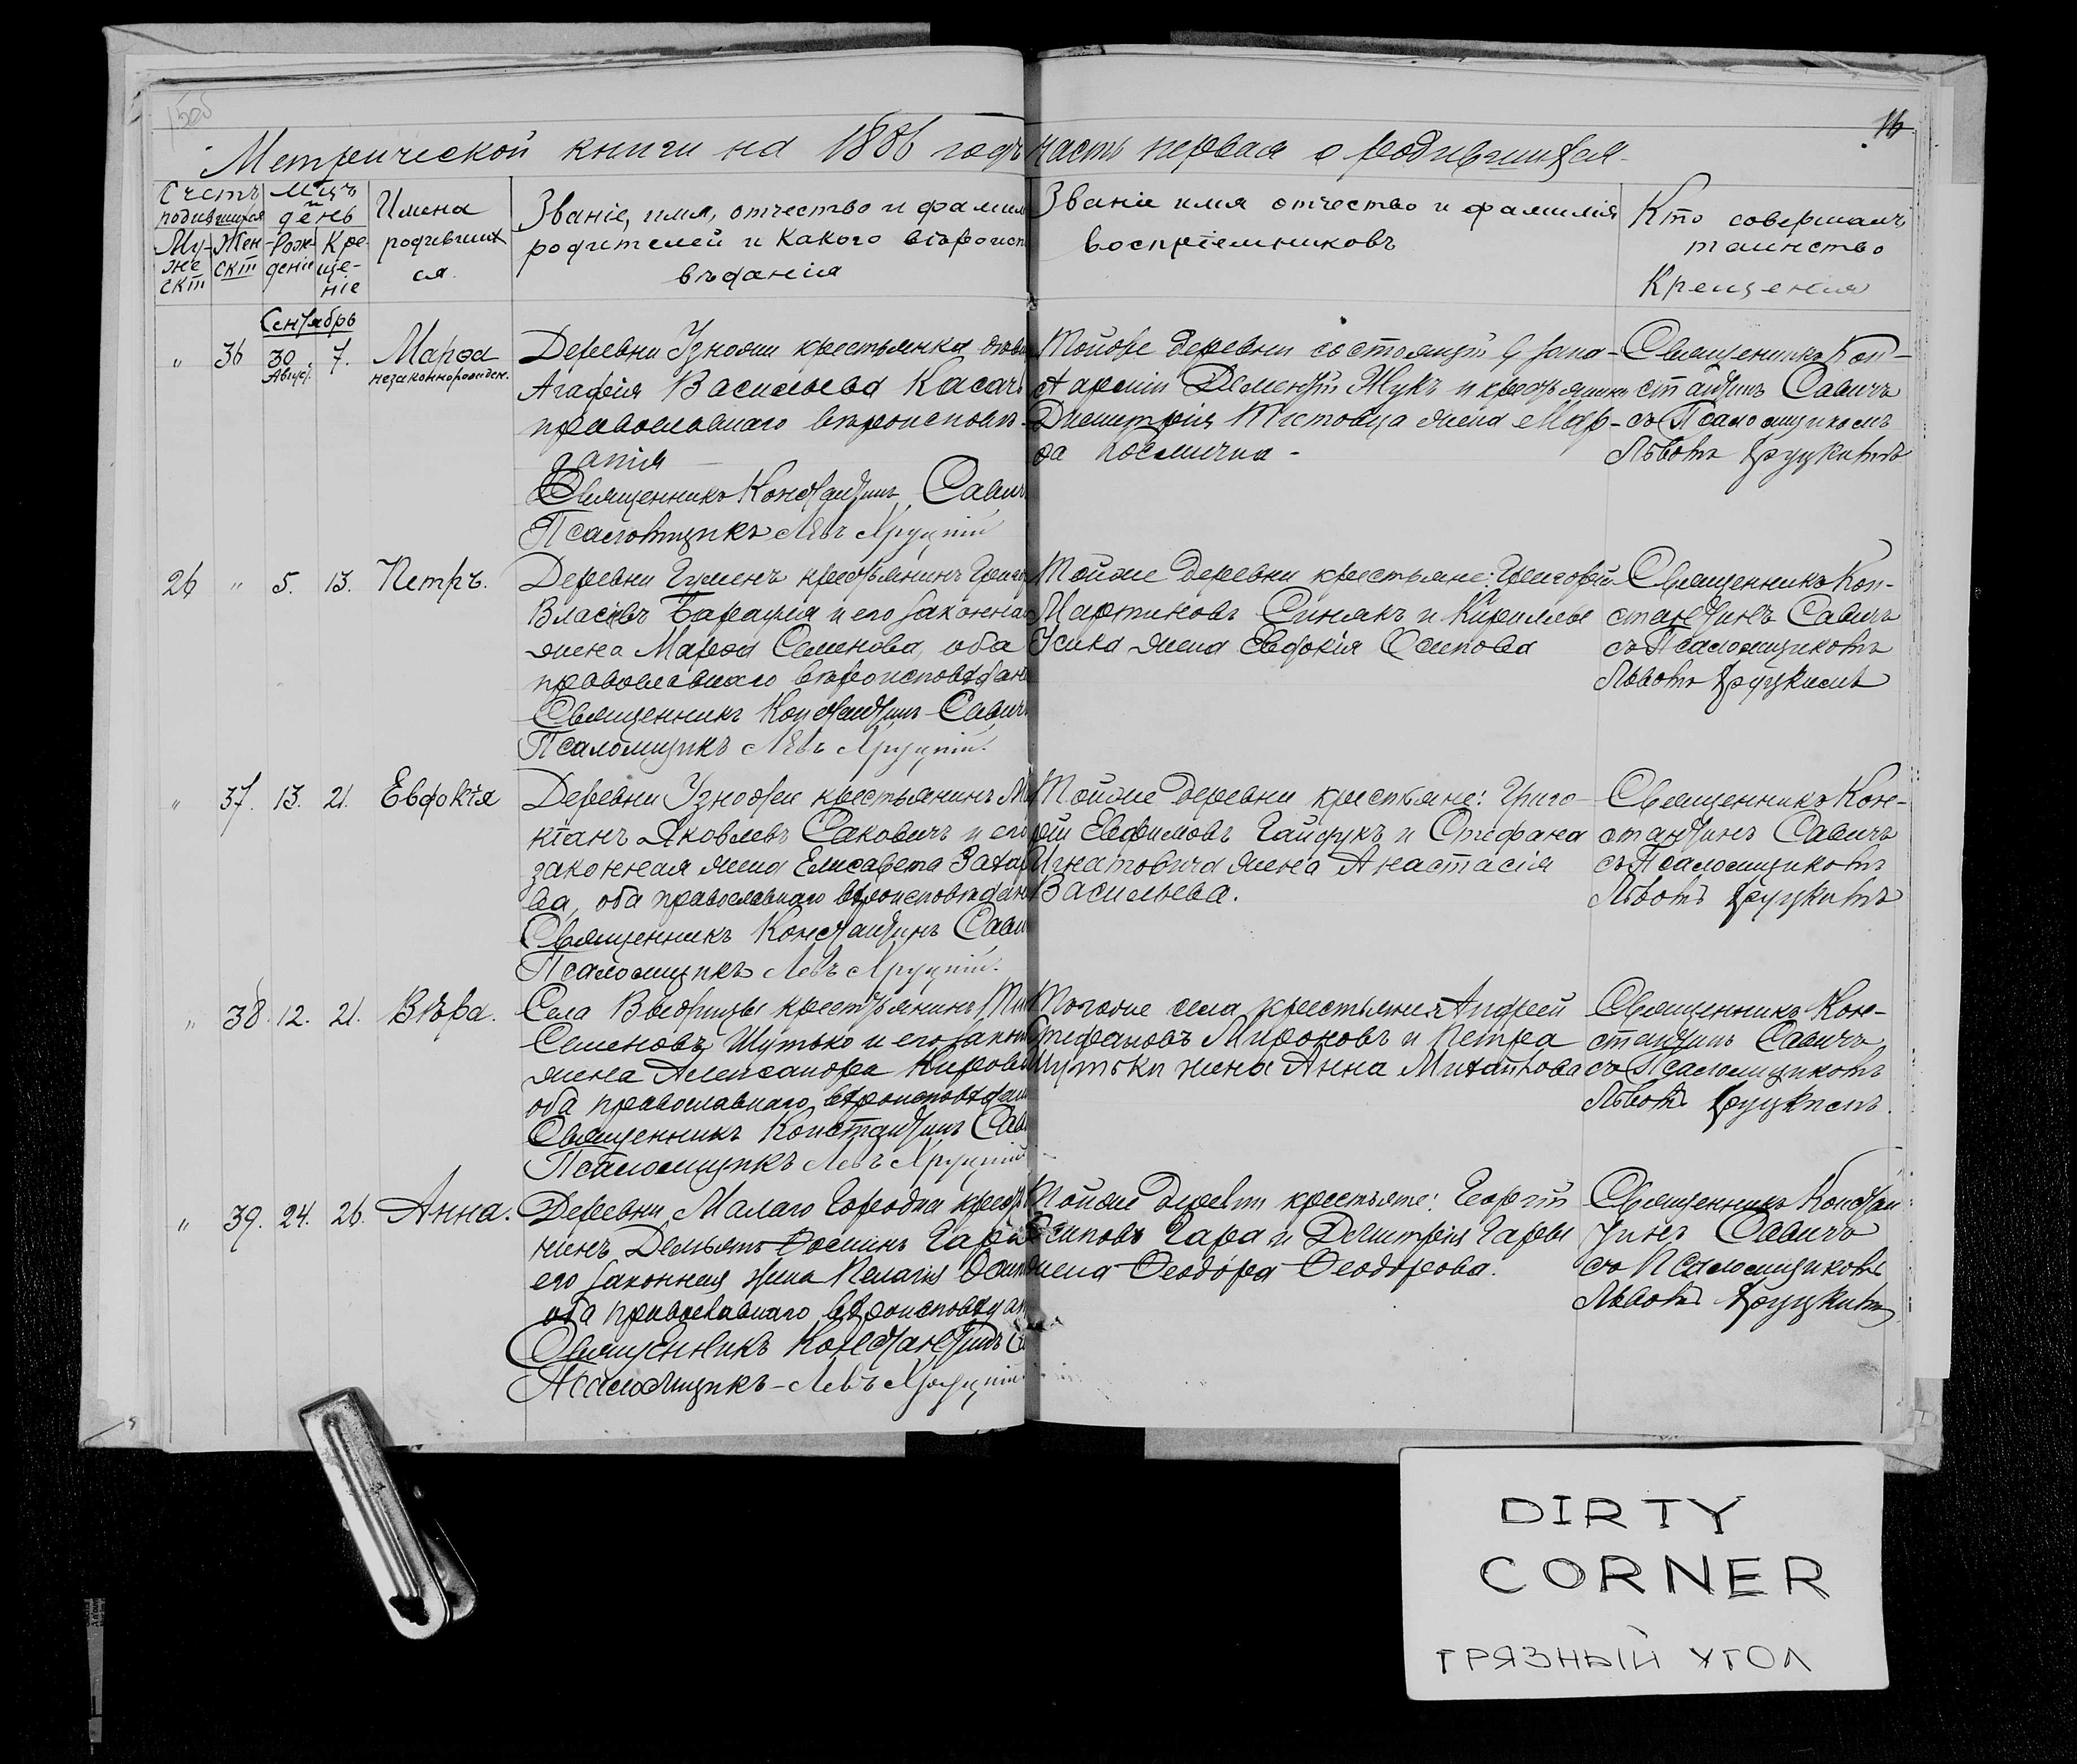 16
Метрической книги на 1886 годъ часть первая о родившихся
Счетъ родившихся
Мсцъ и день
Имена родившихся.
Званіе, имя, отчество и фамил
родителей и какого вѣроисп
вѣданія
Званіе имя отчество и фамилія
воспріемниковъ
Кто совершалъ
таинство
Крещенія
Му-
же
ск
Жен
ск
Рож
деніе
Кре
ще-
ніе
Сентябрь
" 36 30 Август. 7. Марѳа
незаконнорожден.
Деревни Узножи крестьянка
Агафія Васильева
православнаго вѣроисповѣ-
данія
Священникъ Константинъ Савич
Псаломщикъ Левъ Хруцкій
Тойже деревни состоящій въ запа-
съ арміи Дементій Жукъ и крестьянина
Димитрія жена Мар-
ѳа
Священникъ Кон-
стантинъ Савичъ
съ Псаломщикомъ
Львомъ Хруцкимъ
26 " 5. 13. Петръ.
Деревни Гуменъ крестьянинъ Григо
Власовъ и его законная
жена Марѳа Семенова, оба
православнаго вѣроисповѣдан
Священникъ Константинъ Савичъ
Псаломщикъ Левъ Хруцкій.
Тойже деревни крестьяне: Григорій
Мартиновъ Синякъ и Кирилла
Усика жена Евдокія Осипова
Священникъ Кон-
стантинъ Савичъ
съ Псаломщикомъ
Львомъ Хруцкимъ
" 37. 13. 21. Евдокія
Деревни Узножи крестьянинъ
Яковлевъ Саковичъ и его
законная жена Елисавета Захар
ва, оба православнаго вѣроисповѣдан
Священникъ Константинъ Сави
Псаломщикъ Левъ Хруцкій.
Тойже деревни крестьяне: Григо-
рій Евфимовъ Гайдукъ и Стефана
Игнатовича жена Анастасія
Васильева.
Священникъ Кон-
стантинъ Савичъ
съ Псаломщикомъ
Львомъ Хруцкимъ
" 38. 12. 21. Вѣра.
Села Выдрицы крестьянинъ
Семеновъ Шутько и его закон
жена Александра
оба православнаго вѣроисповѣдан
Священникъ Константинъ Сав
Псаломщикъ Левъ Хруцкій
Тогоже села крестьяне Андрей
Стефановъ Мироновъ и Петра
Шутьки жена Анна Михайлова
Священникъ Кон-
стантинъ Савичъ
съ Псаломщикомъ
Львомъ Хруцкимъ.
" 39. 24. 26. Анна.
Деревни Малаго Городна крестья
нинъ Демьянъ Ѳоминъ Гара
его законная жена Пелагія
оба православнаго вѣроисповѣдан
Священникъ Константинъ
Псаломщикъ - Левъ Хруцкій
Тойже деревни крестьяне: Георгій
Осиповъ Гара и Димитрія Гары
жена Ѳеодора Ѳеодорова.
Священникъ Констан
тинъ Савичъ
съ Псаломщикомъ
Львомъ Хруцкимъ
DIRTY
CORNER
ГРЯЗНЫЙ УГОЛ